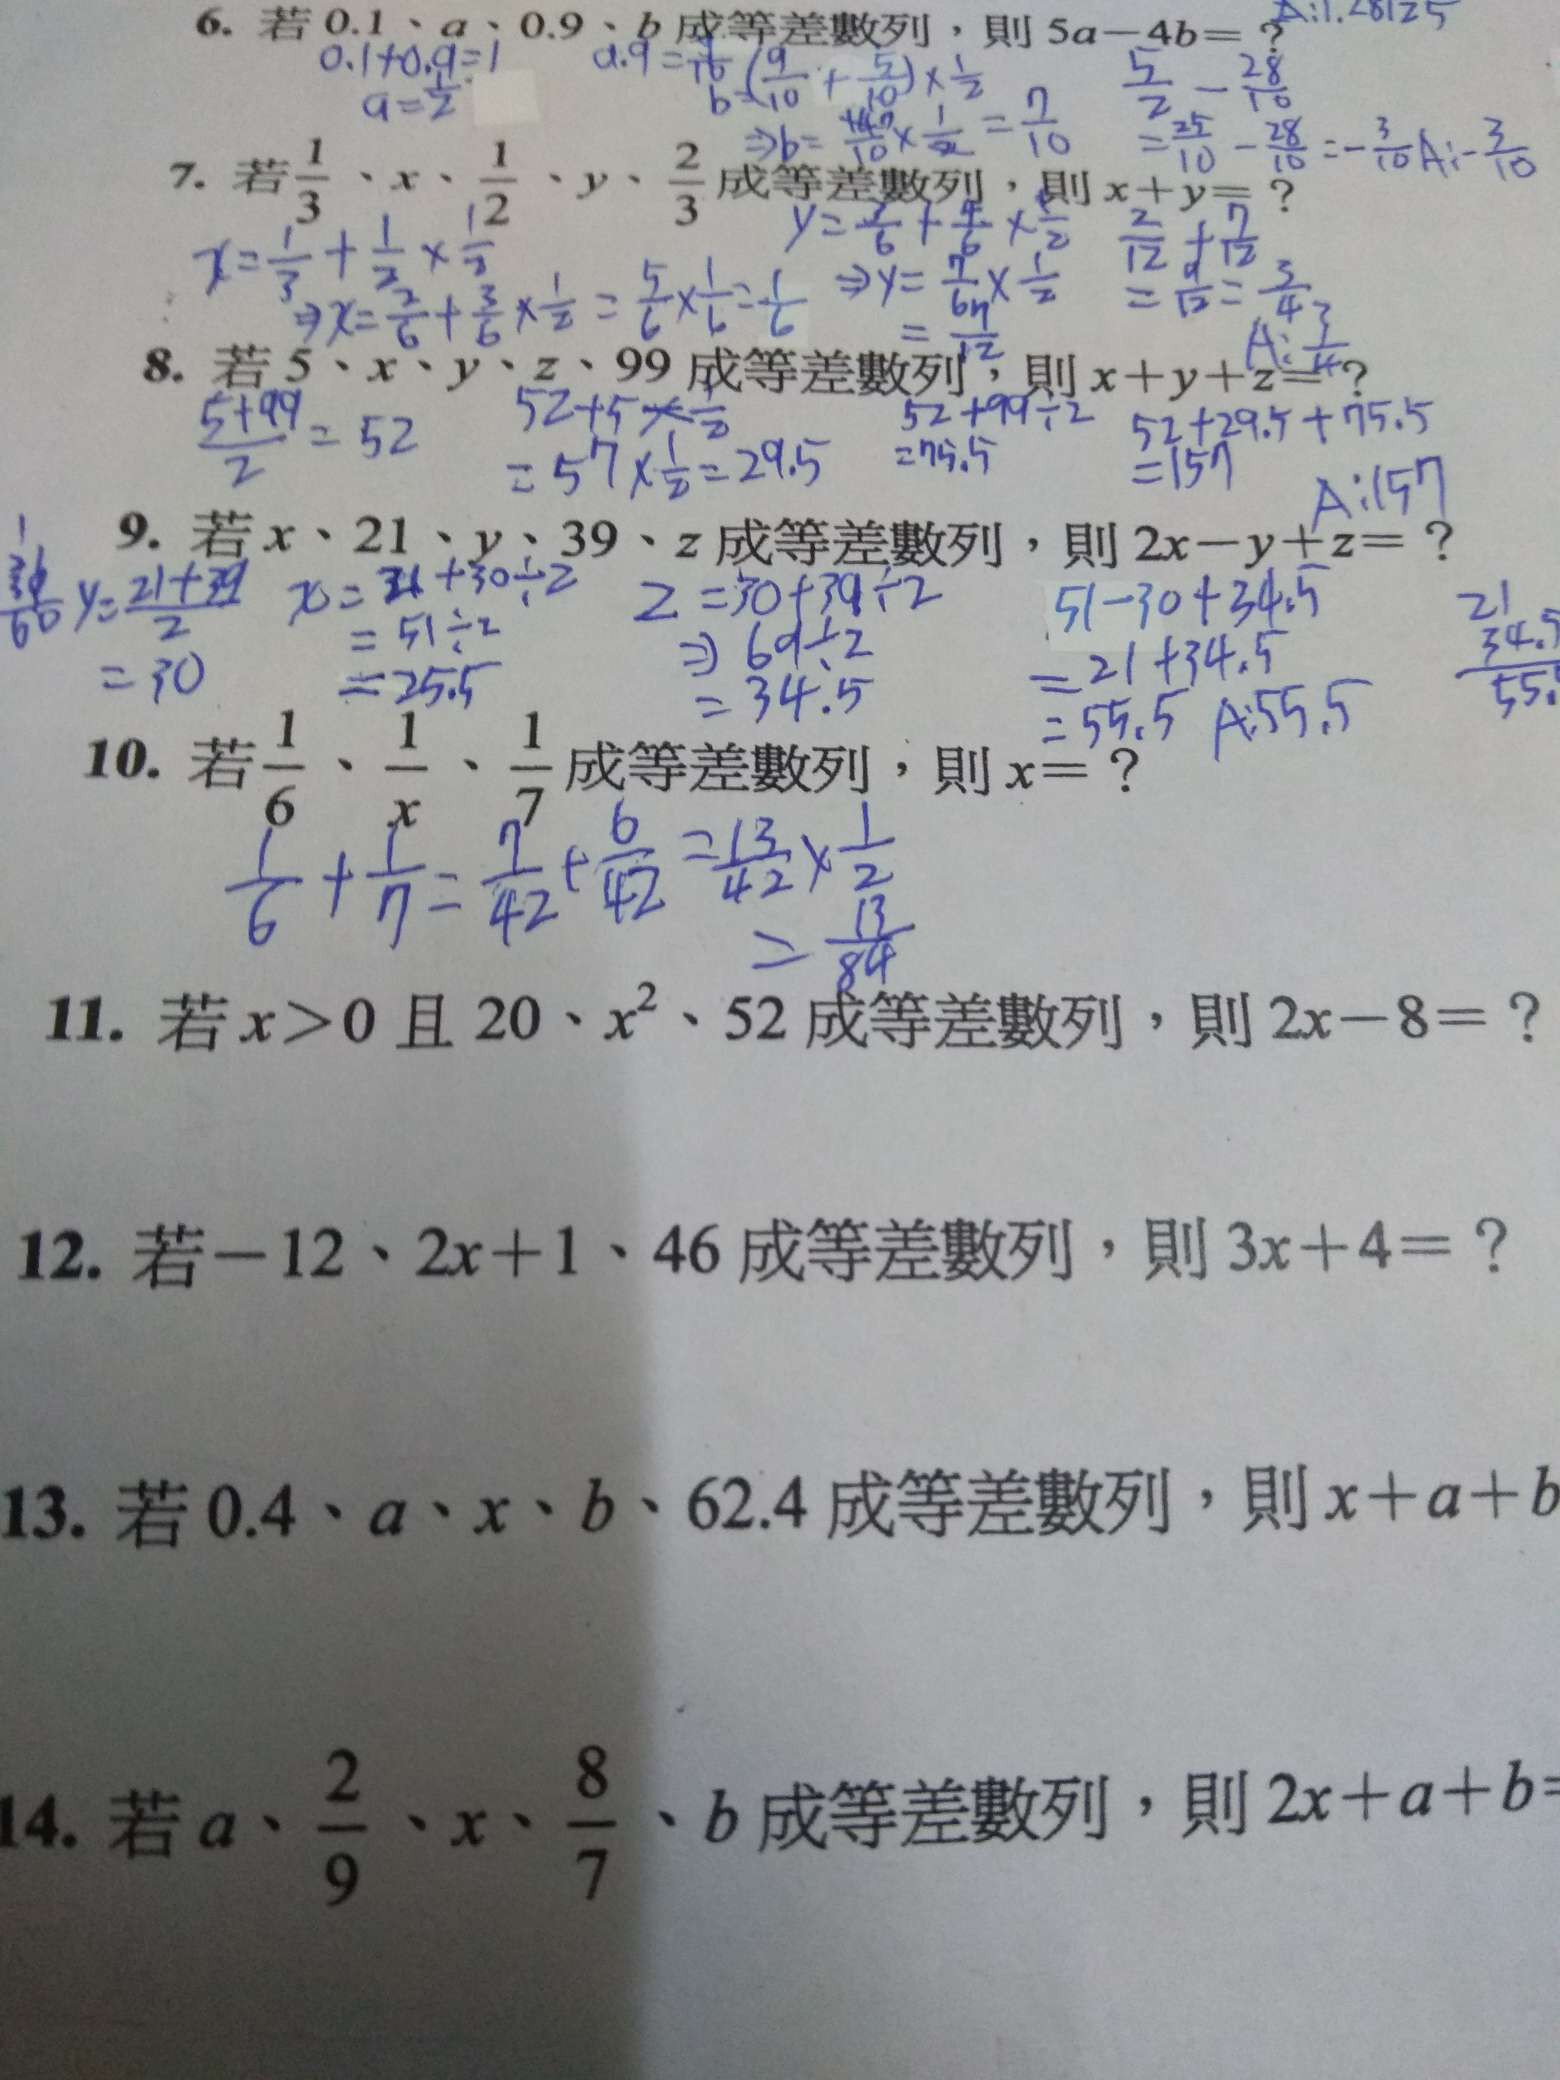 A:1.28125
6. 若 0.1、a、0.9、b 成等差數列，則 5a－4b＝？
0.1+0.9=1
a=1/2
b=(9/10+5/10)×1/2
⇒b= ×1/2=7/10
5/2－28/10
=25/10－28/10=－3/10 A:－3/10
7. 若 1/3、x、1/2、y、2/3 成等差數列，則 x＋y＝？
x=1/3+1/2×1/2
⇒x=2/6+3/6×1/2=5/6×1/6=1/6
⇒y=7/6×1/2
=7/12
2/12+7/12
=9/12=3/4
A:3/4
8. 若 5、x、y、z、99 成等差數列，則 x＋y＋z＝？
5+99/2=52
52+5×1/2
=57×1/2=29.5
52+99÷2
=75.5
52+29.5+75.5
=157
A:157
9. 若 x、21、y、39、z 成等差數列，則 2x－y＋z＝？
y=21+39/2
=30
x=21+30÷2
=51÷2
=25.5
z=30+39÷2
⇒69÷2
=34.5
51－30+34.5
=21+34.5
=55.5 A:55.5
21
34.5
55.
10. 若 1/6、1/x、1/7 成等差數列，則 x＝？
1/6+1/7=7/42+6/42=13/42×1/2
=13/84
11. 若 x＞0 且 20、x²、52 成等差數列，則 2x－8＝？
12. 若－12、2x＋1、46 成等差數列，則 3x＋4＝？
13. 若 0.4、a、x、b、62.4 成等差數列，則 x＋a＋b
14. 若 a、2/9、x、8/7、b 成等差數列，則 2x＋a＋b＝